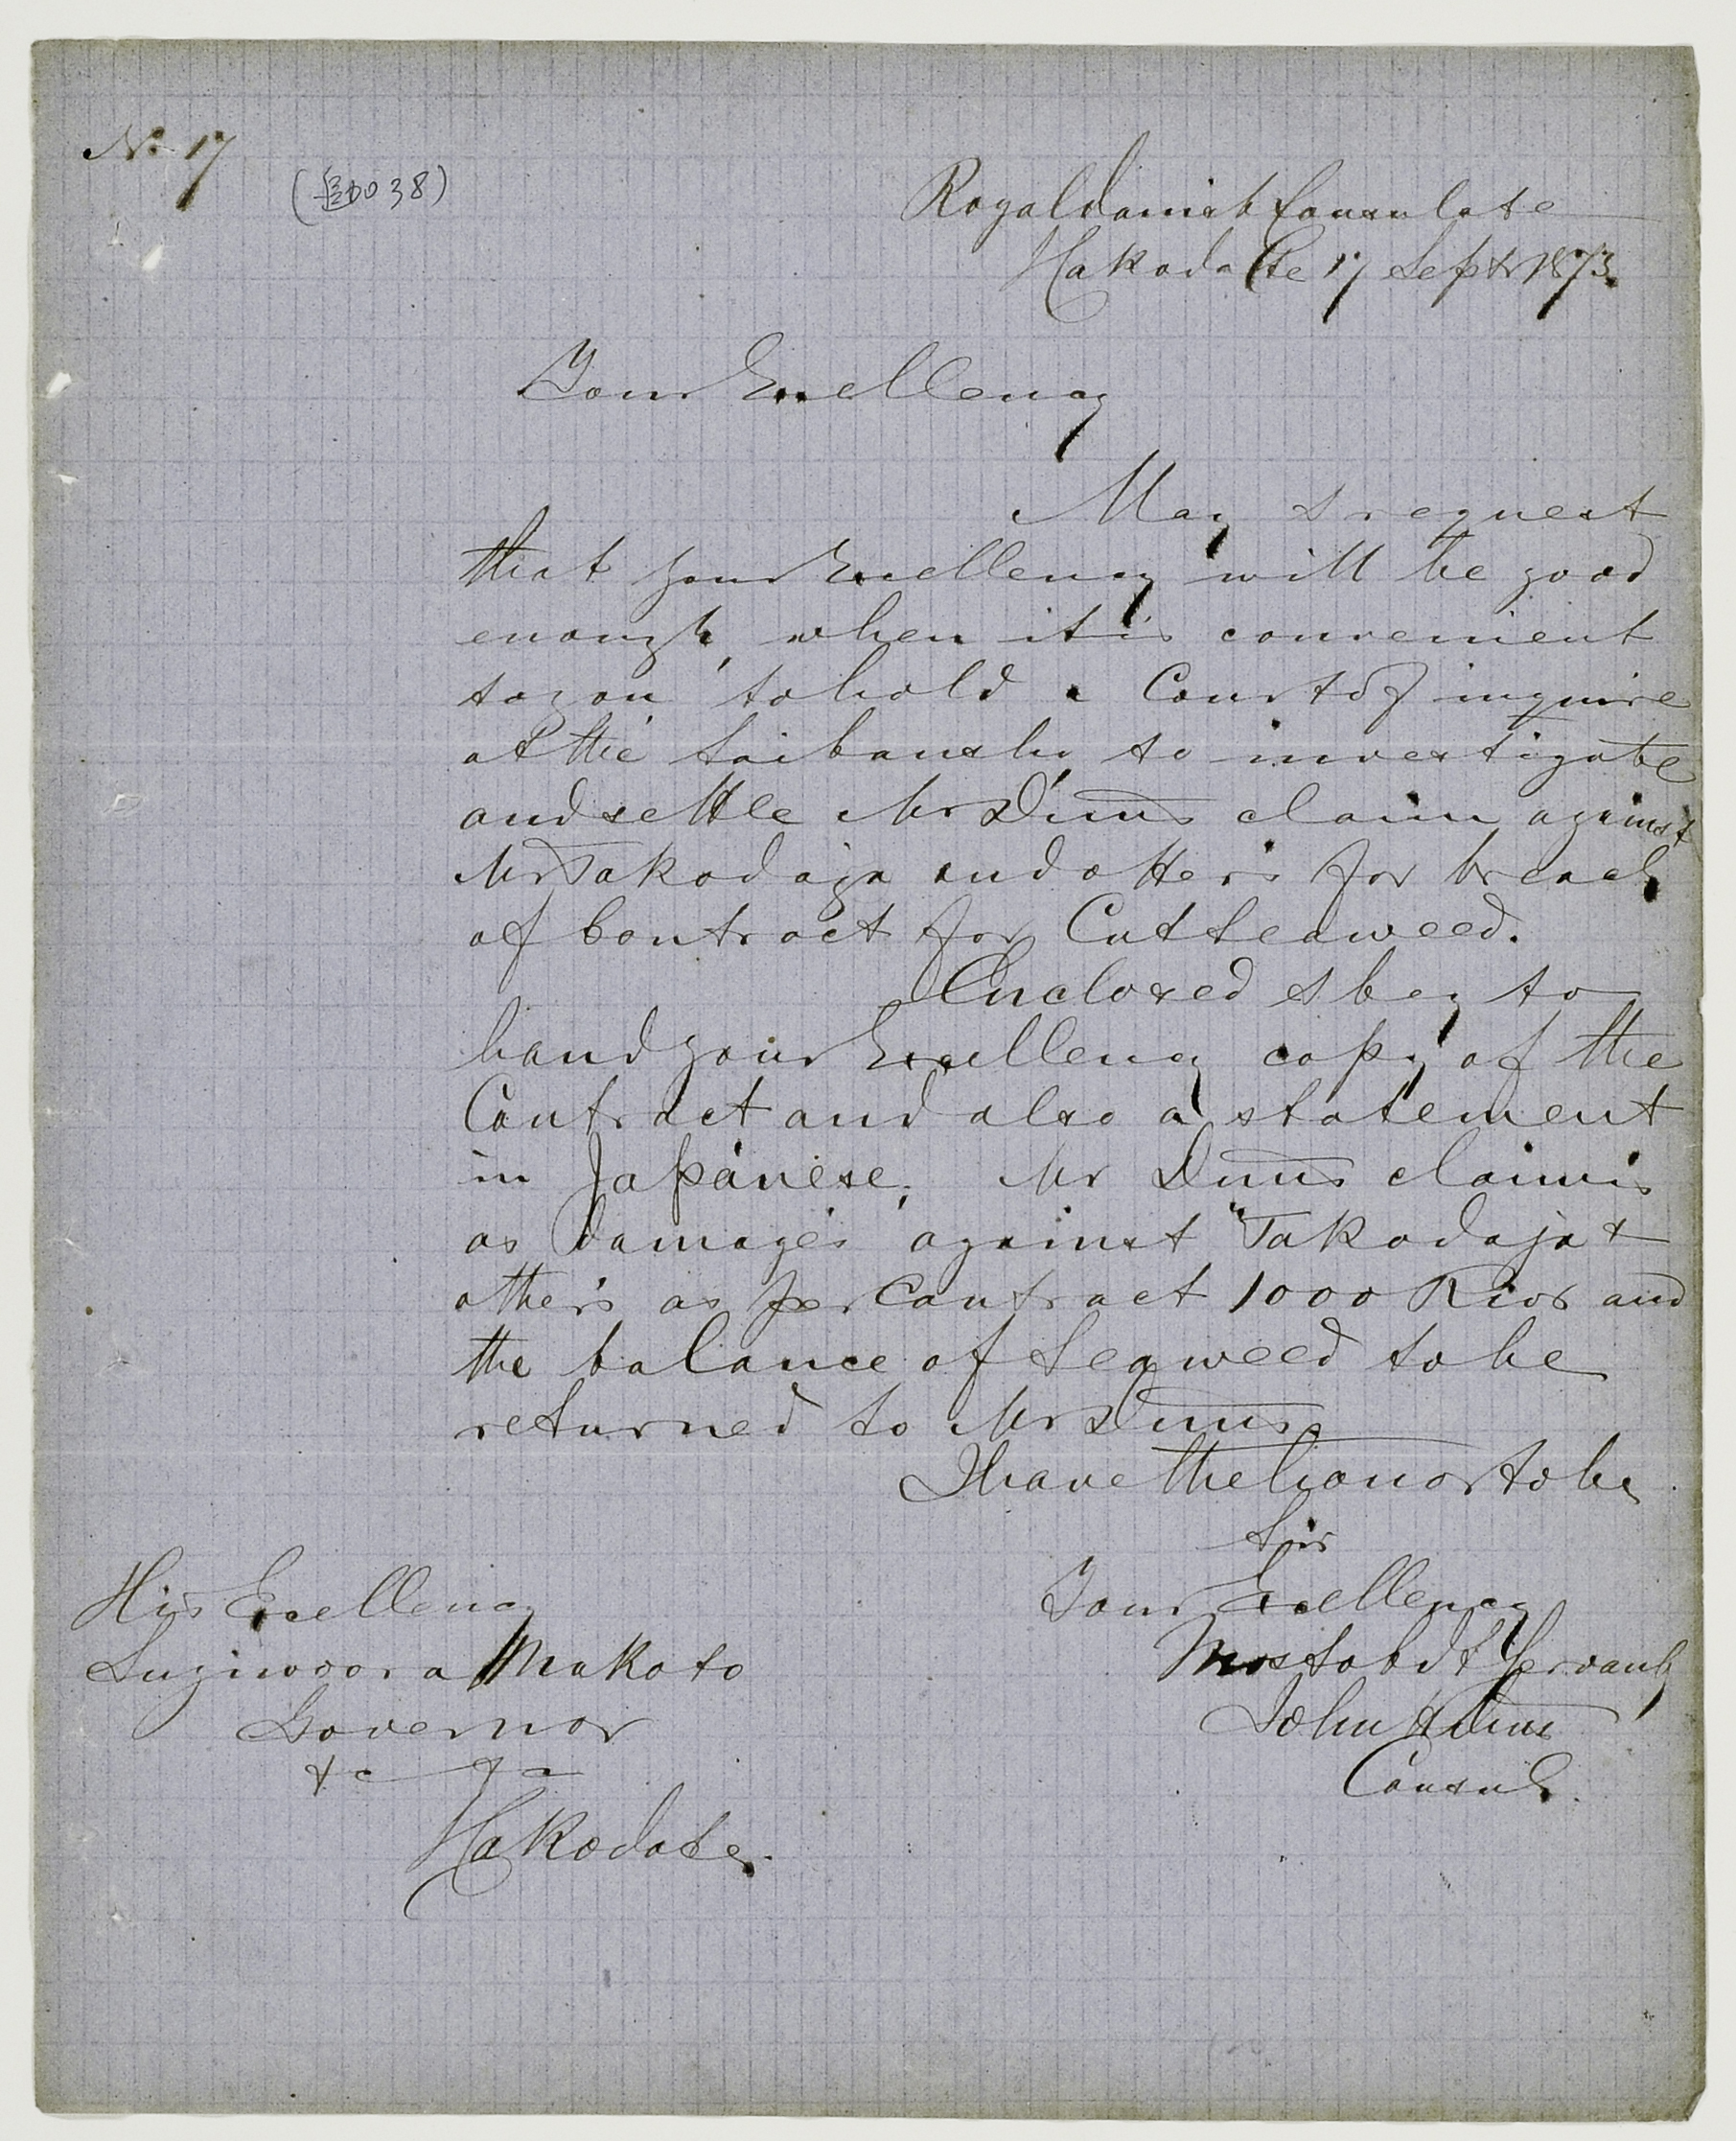 No 17
38)
Royal danish Consulate
Hakodate 17 Septr 1873.
Your Excellency
May I request
that your Excellency will be good
enough, when it is convenient
to you to hold a Court of inquire
at the Saibansho to investigate
and settle Mr Duus claim against
Mr Takodaja and others for breach
of Contract for Cut Seaweed.
Enclosed I beg to
hand your Excellency copy of the
Contract and also a statement
in Japanese, Mr Duus claims
as damages against Takodaja &
others as per Contract 1000 Rios and
the balance of Seaweed to be
returned to Mr Duus.
I have the honor to be
Sir
Your Excellency
Most obdt Servant
John H Duus
Consul.
His Excellency
Sugiwoora Makoto
Governor
&c &c
Hakodate.